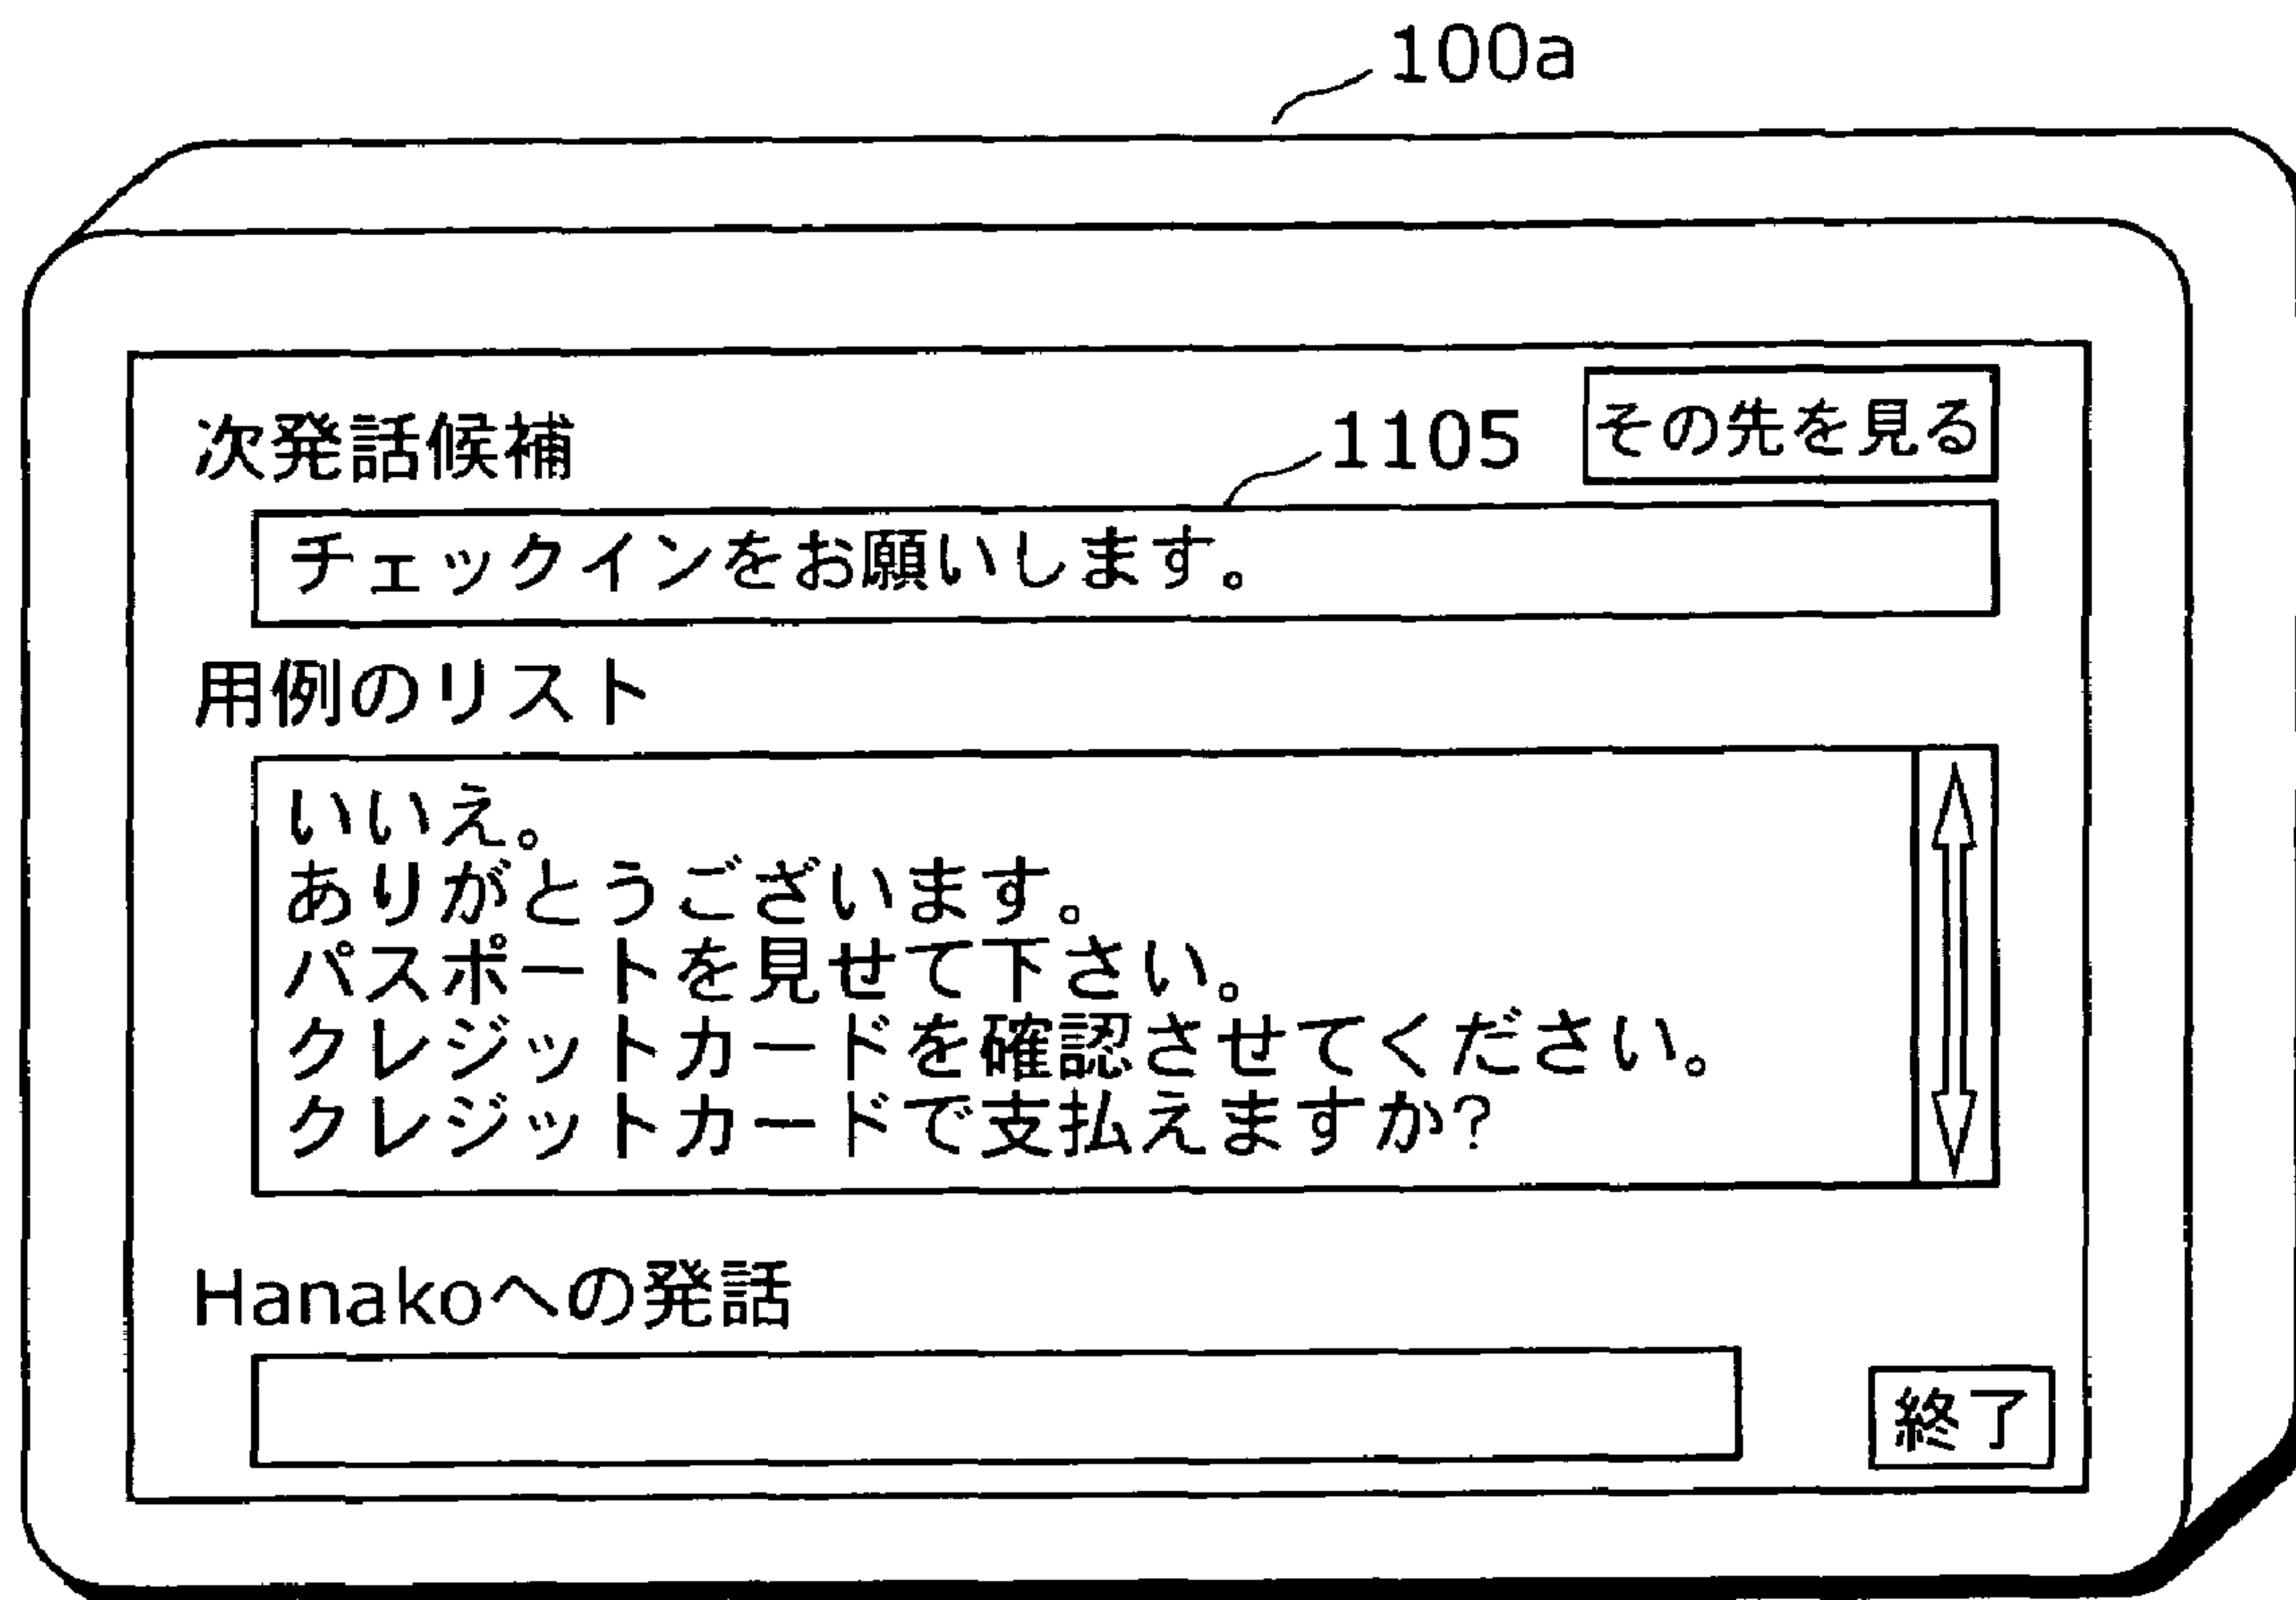 100a
次発話候補
1105
その先を見る
チェックインをお願いします。
用例のリスト
いいえ。
ありがとうございます。
パスポートを見せて下さい。
クレジットカードを確認させてください。
クレジットカードで支払えますか?
Hanakoへの発話
終了